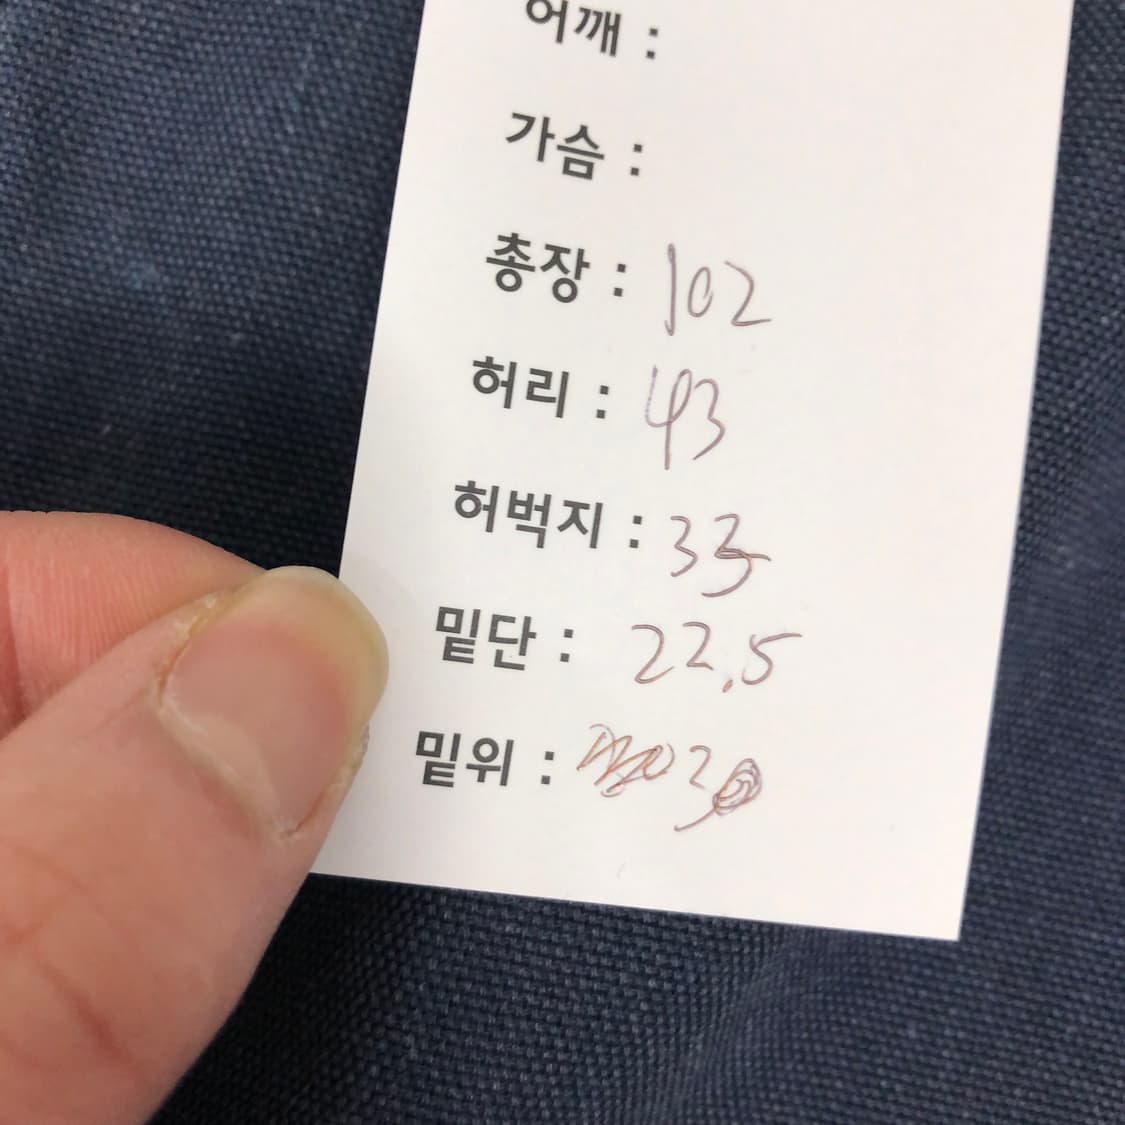 어깨 :
가슴 :
총장 : 102
허리 : 43
허벅지 :
밑단 : 22.5
밑위 :